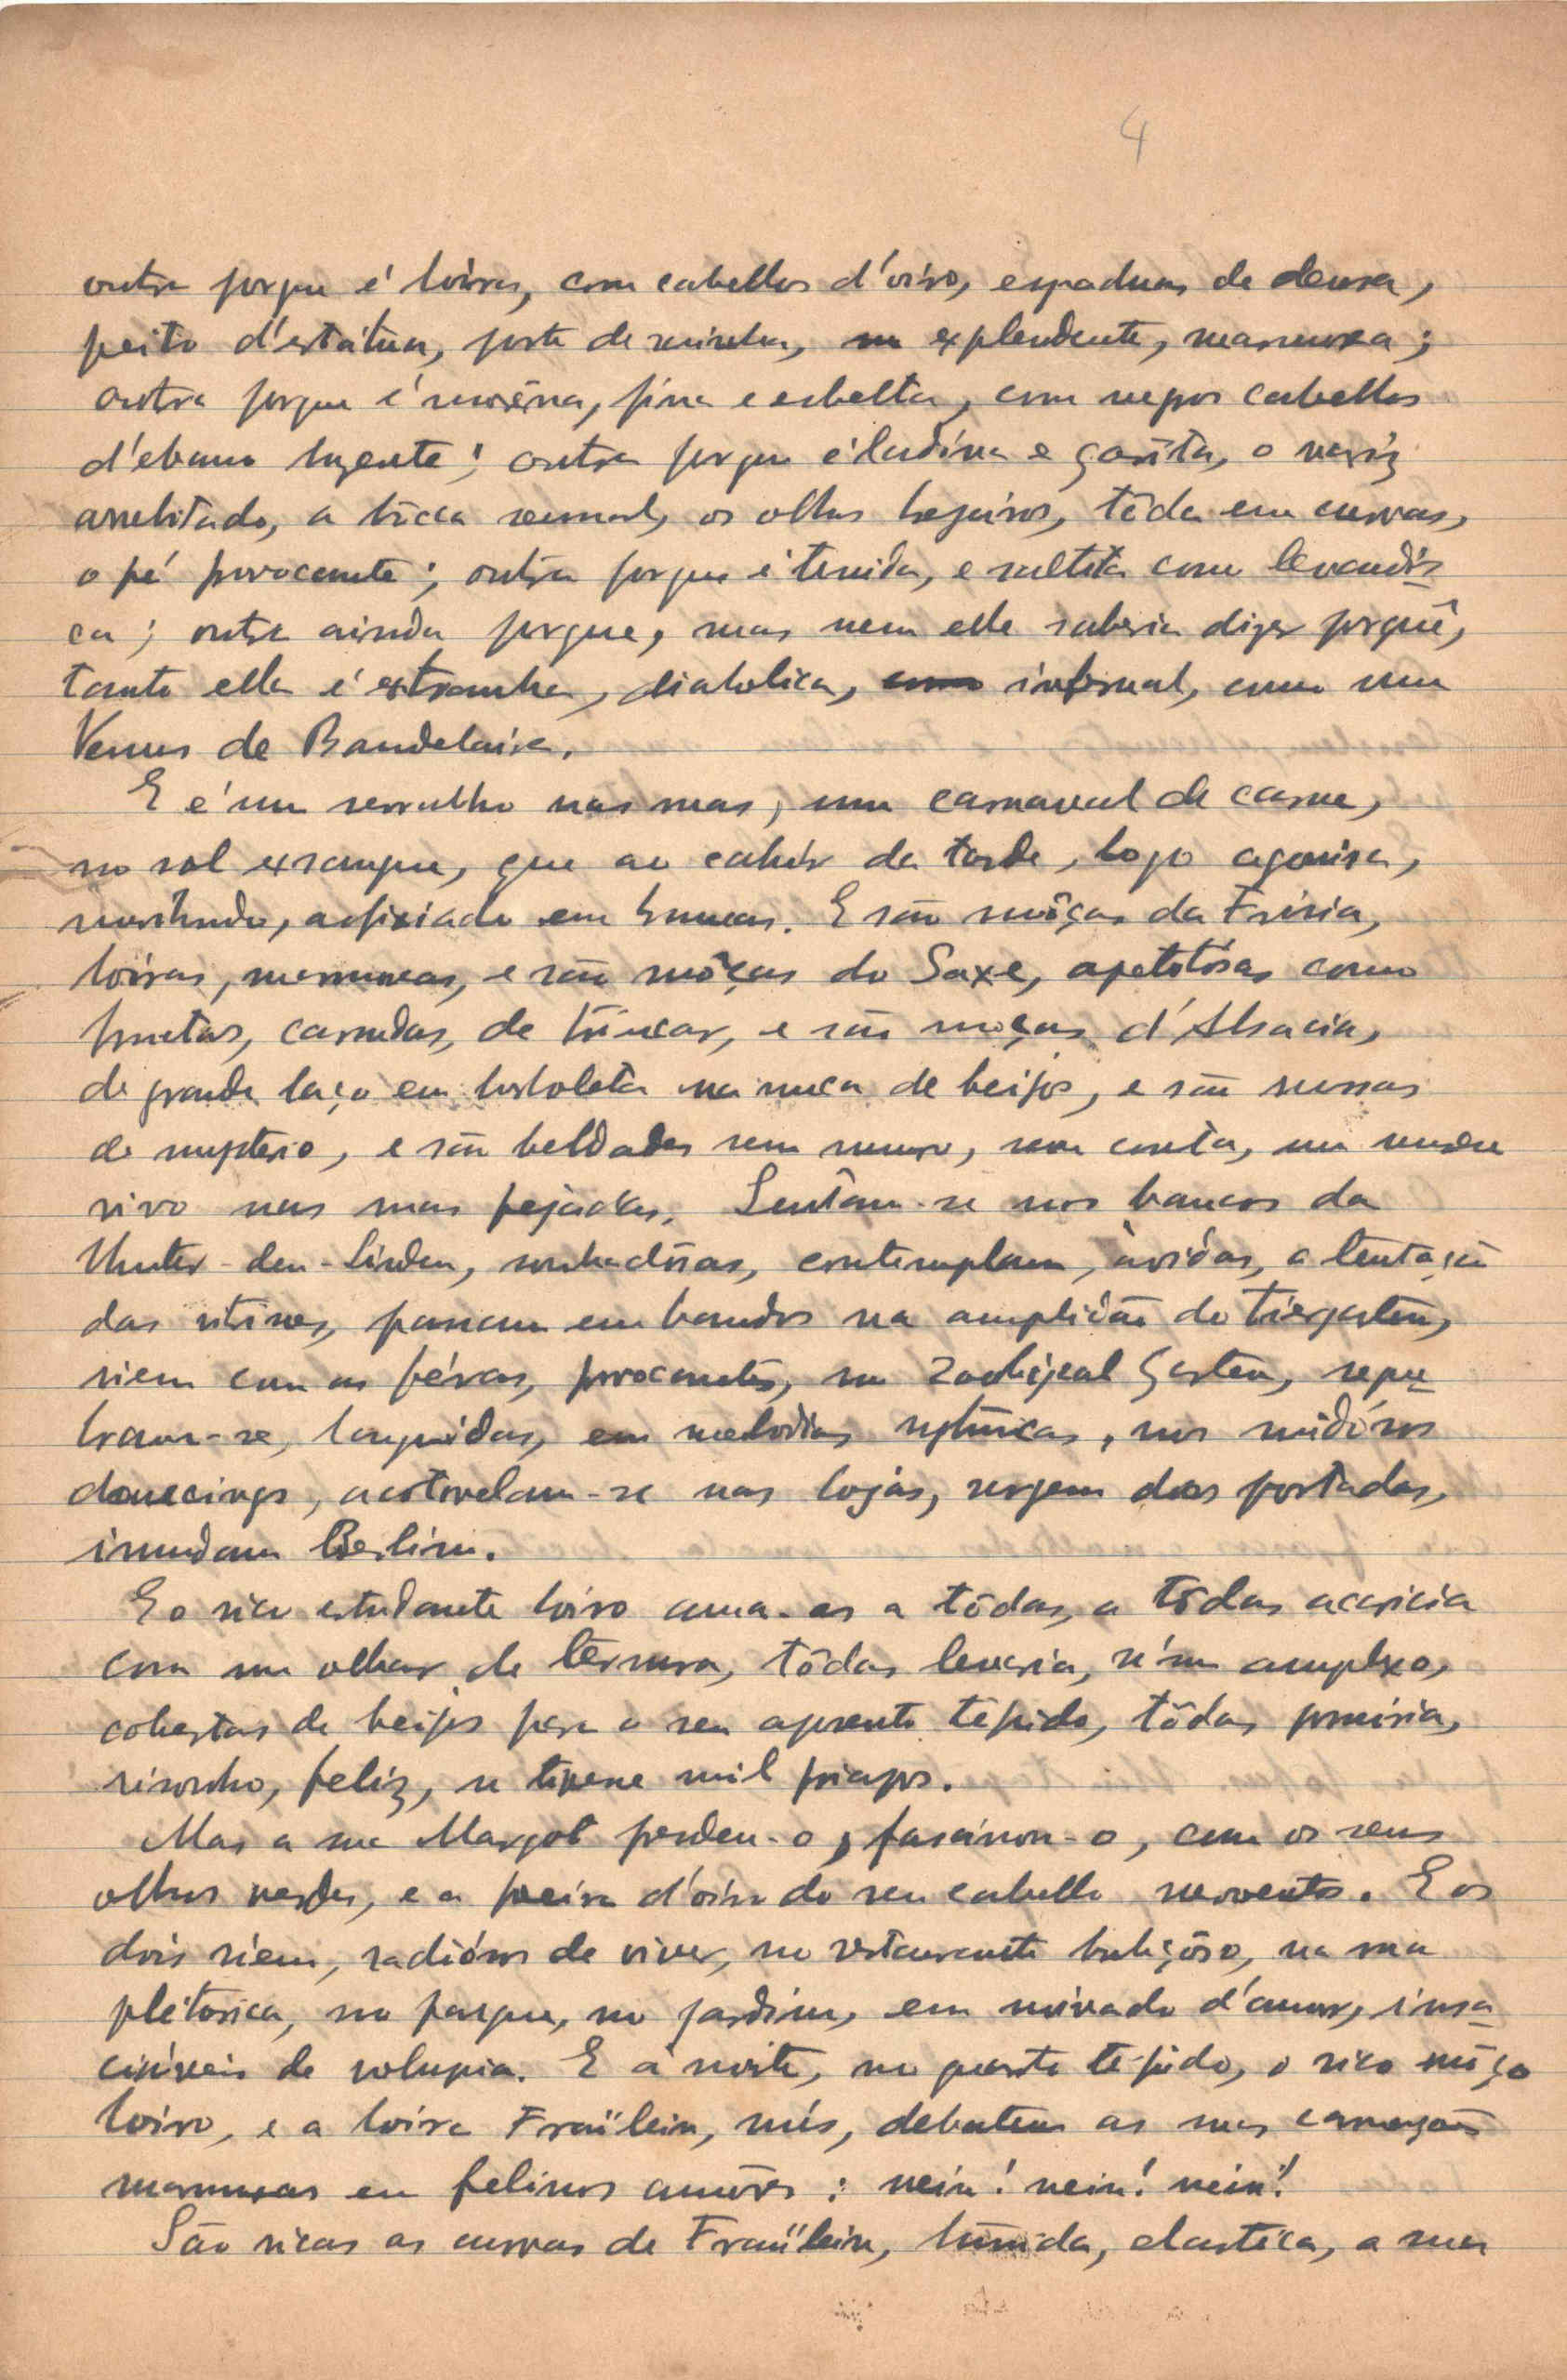 4
outra porque é loira, com cabellos d'oiro, espaduas de deusa,
peito d'estátua, porte de rainha, explendente, marmorea;
outra porque é morêna, fina e esbelta, com negros cabellos
d'ebano luzente; outra porque é ladina e garôta, o nariz
arrebitado, a bôcca sensual, os olhos brejeiros, tôda em curvas,
o pé provocante; outra porque é timida, e saltita como levandis-
ca; outra ainda porque, mas nem elle saberia dizer porquê,
tanto ella é extranha, diabolica, infernal, como uma
Venus de Baudelaire.
E é um serralho nas ruas, um carnaval de carne,
no sol exsangue, que ao cahir da tarde, logo agonisa,
moribundo, asfixiado em brumas. E são môças da Frisia,
loiras, marmoreas, e são môças do Saxe, apetitôsas como
fructas, carnudas, de trincar, e são moças d'Alsacia,
de grande laço em borboleta na nuca de beijos, e são russas
de mysterio, e são beldades sem numero, sem conta, um museu
vivo nas ruas pejadas. Sentam-se nos bancos da
Unter-den-Linden, sonhadôras, contemplam, ávidas, a tentação
das vitrines, passam em bandos na amplidão do Tiergarten,
riem com as féras, provocantes, no Zoological Garten, reque-
bram-se, languidas, em melodias rythmicas, nos ruidósos
dancings, acotovelam-se nas lojas, surgem das portadas,
inundam Berlim.
E o rico estudante loiro ama-as a tôdas, a tôdas acaricia
com um olhar de ternura, tôdas levaria, n'um amplexo,
cobertas de beijos para o seu aposento tépido, tôdas possuiria,
risonho, feliz, se tivesse mil priapos.
Mas a sua Margot perdeu-o, fascinou-o, com os seus
olhos verdes, e a poeira d'oiro do seu cabello revolto. E os
dois riem, radiósos de viver, no restaurante buliçôso, na rua
pletórica, no parque, no jardim, em noivado d'amor, insa-
ciáveis de volupia. E á noite, no quarto tépido, o rico môço
loiro, e a loira Fraülein, nús, debatem as suas carnações
marmoreas em felinos amôres: nein! nein! nein!
São ricas as curvas de Fraülein, túmida, elastica, a sua